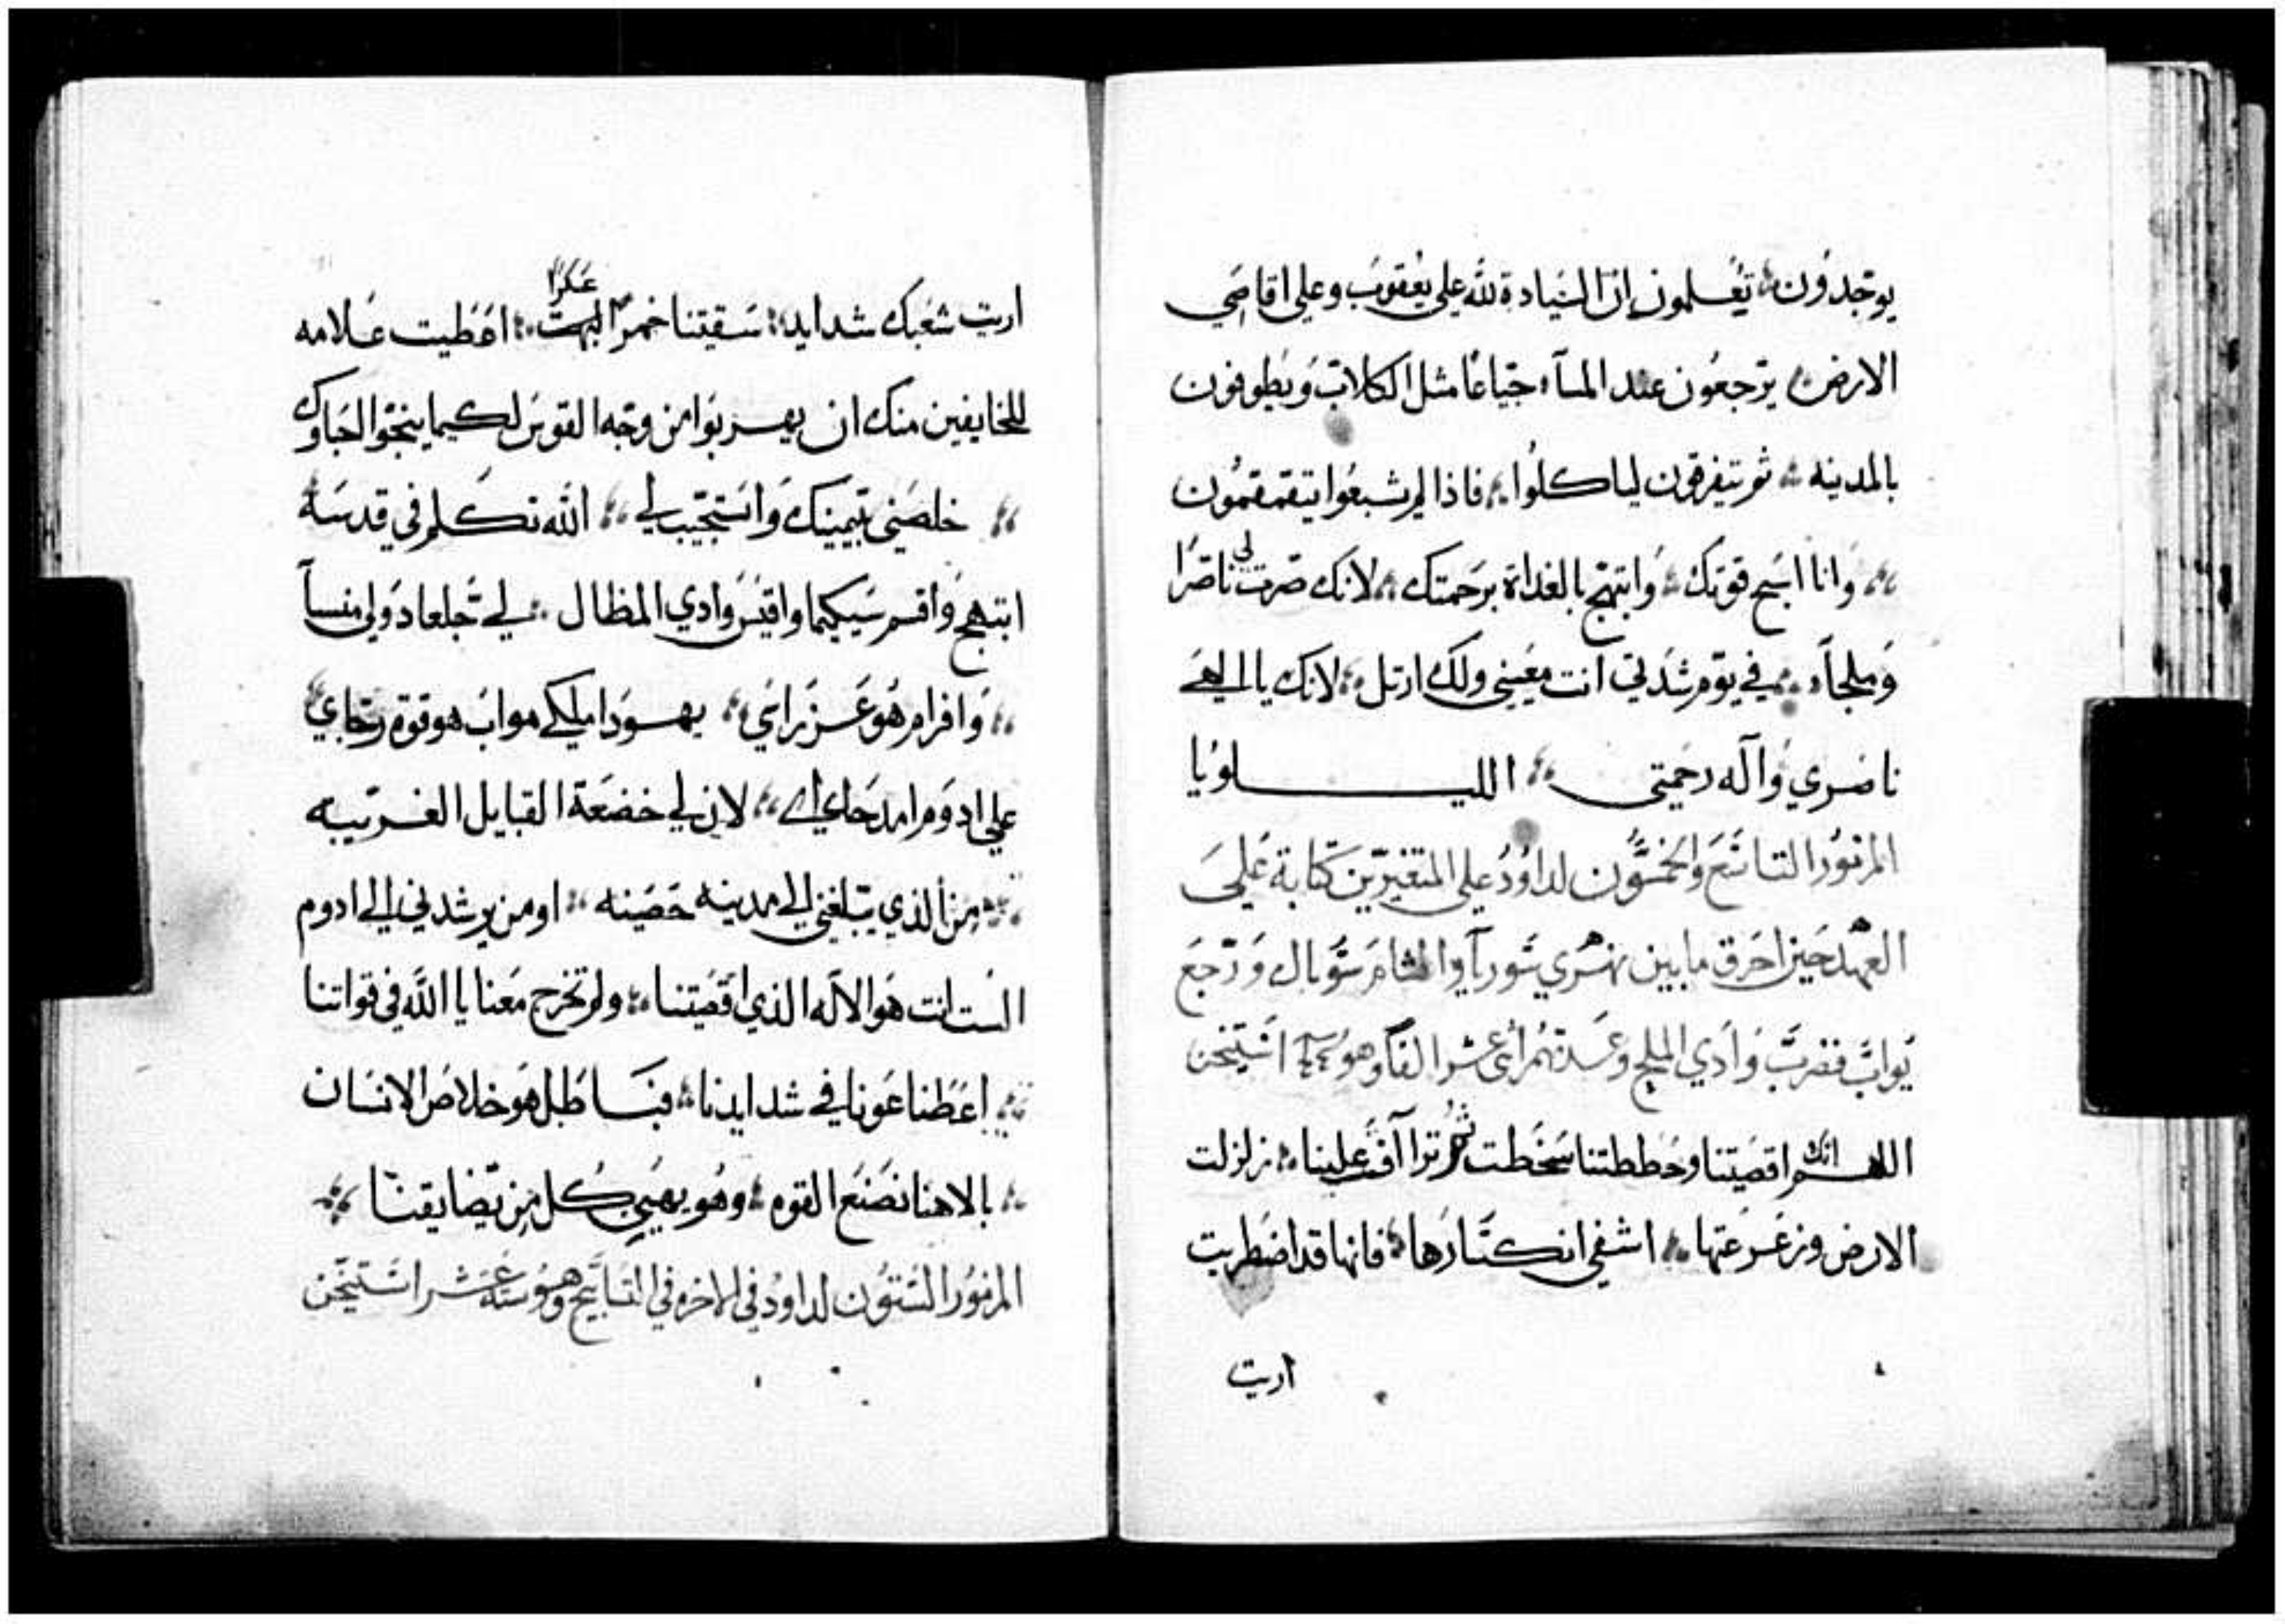 يوجدون تعلمون ان السيادة لله على يعقوب وعلى اقاصي
الارض يرجعون عند المسآ جياعا مثل الكلاب ويطوفون
بالمدينه ثم يتفرقون لياكلوا فاذا لم يشبعوا يتقمقمون
وانا اسبح قوتك وابتهج بالغداة برحمتك لانك صرت لي ناصرا
وملجآ في يوم شدتي انت معيني ولك ارتل لانك يا الهي
ناصري وآله رحمتي الليلويا
المزمور التاسع والخمسون لداوود على المتغيرين كتابة على
العهد حين احرق ما بين نهري سوريآ والشام سوبال ورجع
يواب فضرب وادي الملح وعدتهم اثنى عشر الفا وهو استيخن
اللهم انك اقصيتنا وحططتنا سخطت ثم تراآفت علينا زلزلت
الارض وزعزعتها اشفي انكسارها فانها قد اضطربت
اريت
اريت شعبك شدايد سقيتنا خمر البهت عكرا اعطيت علامه
للخايفين منك ان يهربوا من وجه القوس لكيما ينجوا احباوك
خلصني بيمينك واستجيب لي الله تكلم في قدسه
ابتهج واقسم سيكيما واقيس وادي المظال لي جلعاد ولي منسآ
وافرام هو عز راسي يهودا ملكي مواب هو قوة رجاي
على ادوم امد حداي لان لي خضعة القبايل الغريبه
من الذي يبلغني الى مدينه حصينه او من يرشدني الى ادوم
الست انت هو الاله الذي اقصيتنا ولم تخرج معنا يا الله في قواتنا
اعطنا عونا في شدايدنا فباطل هو خلاص الانسان
بالاهنا نصنع القوه وهو يهين كل من يضايقنا
المزمور الستون لداوود في الاخره في التسابيح وهو سته عشر استيخن